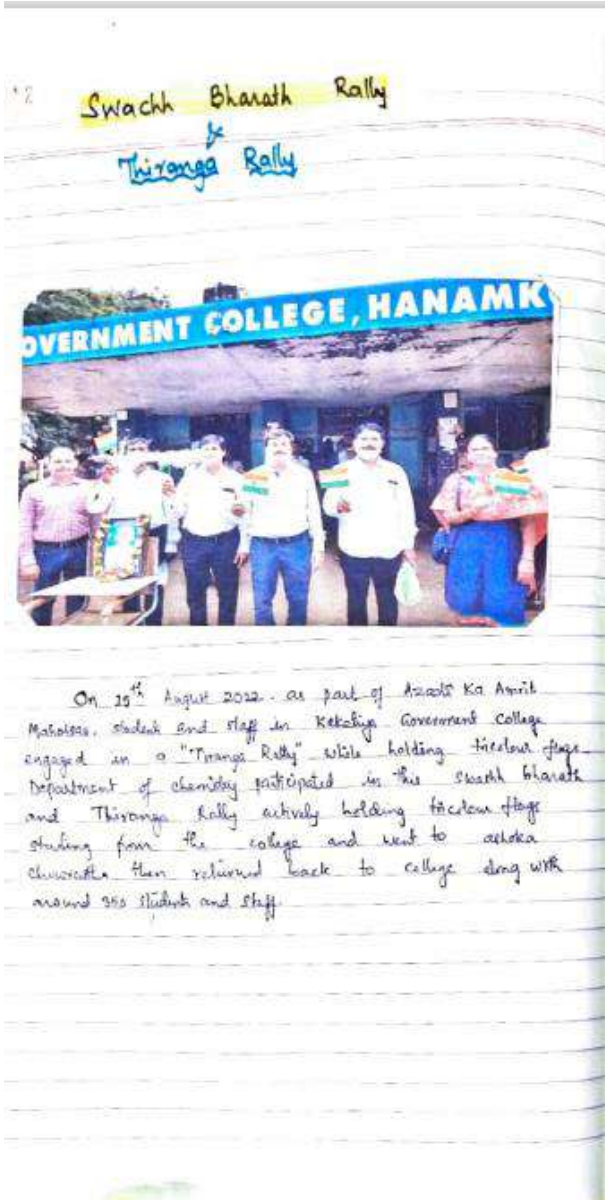 Swachh Bharath Rally
&
Thiranga Rally
OVERNMENT COLLEGE, HANAMK
On 15th August 2022. as part of Azadi Ka Amrit
student and staff in Kakatiya Government college
engaged in a "Tiranga Rally" while holding tricolour flags.
Department of chemistry participated in this Swachh bharath
and Thiranga Rally actively holding tricolour flags
starting from the college and went to ashoka
then returned back to college along with
around 350 students and staff.